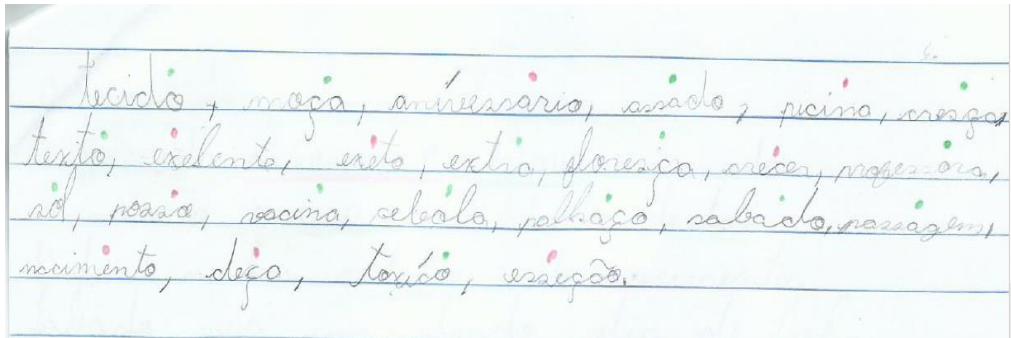 tecido, moça, aníversario, assado, picina, cresça,
texto, exelente, exeto, extra, floresça, crecer, professora,
sol, possso, vacina, cebola, palhaço, sabado, passagem,
nacimento, deço, toxíco, esseção.